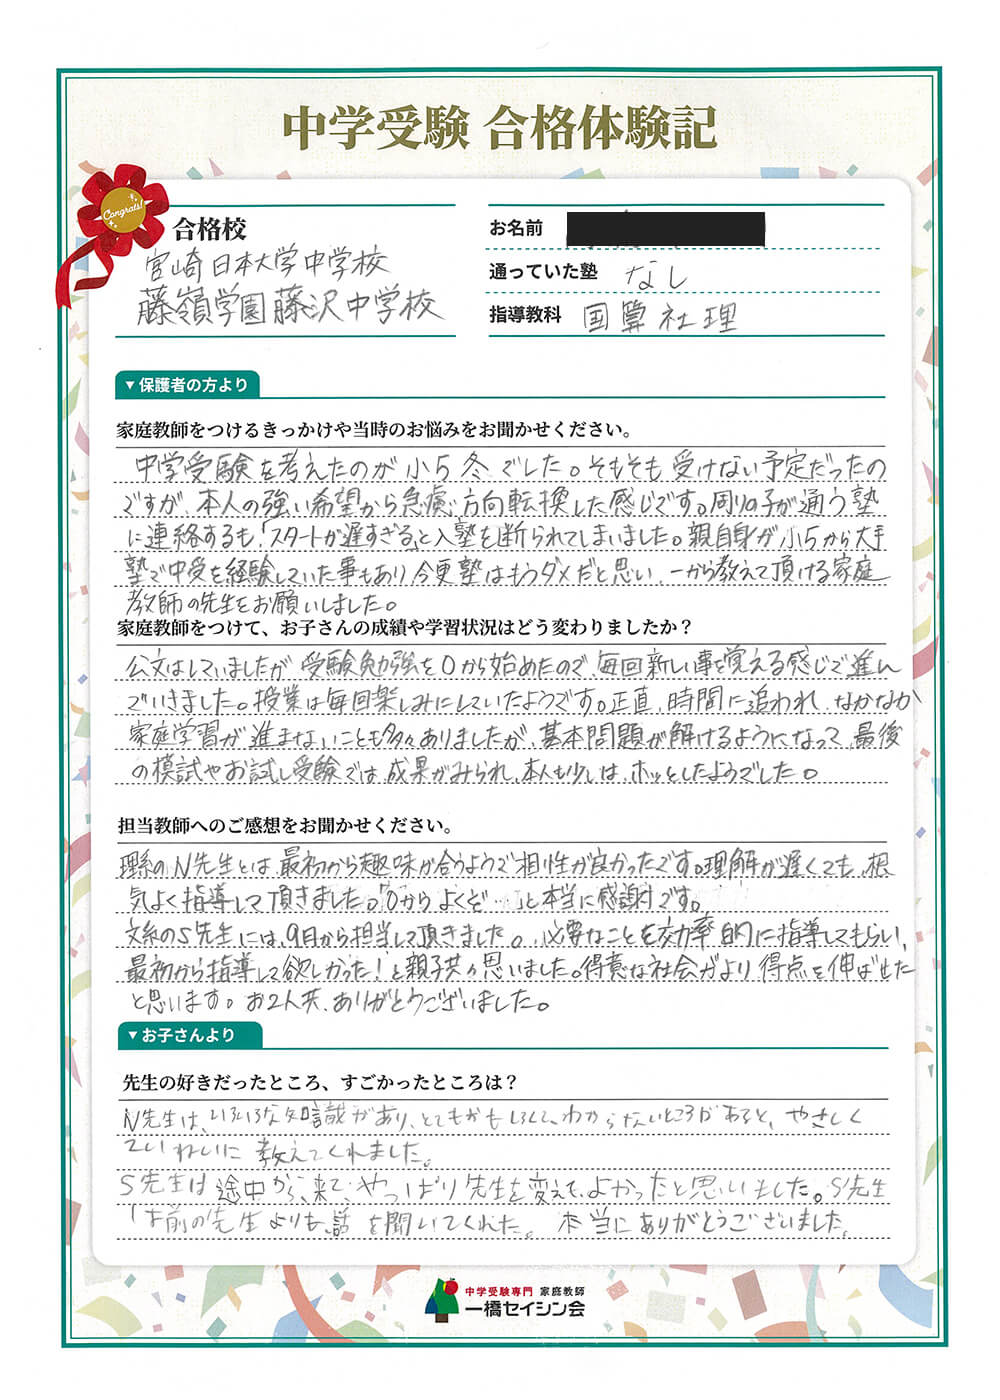 中学受験 合格体験記
Congrats!
合格校
宮崎日本大学中学校
藤嶺学園藤沢中学校
お名前
通っていた塾 なし
指導教科 国算社理
▼保護者の方より
家庭教師をつけるきっかけや当時のお悩みをお聞かせください。
中学受験を考えたのが小5冬でした。そもそも受けない予定だったの
ですが、本人の強い希望から急慮、方向転換した感じです。周りの子が通う塾
に連絡するも「スタートが遅すぎる」と入塾を断られてしまいました。親自身が小5から大手
塾で中受を経験していた事もあり今更塾はもうダメだと思い、一から教えて頂ける家庭
教師の先生をお願いしました。
家庭教師をつけて、お子さんの成績や学習状況はどう変わりましたか？
公文はしていましたが受験勉強を0から始めたので、毎回新しい事を覚える感じで進ん
でいきました。授業は毎回楽しみにしていたようです。正直、時間に追われ、なかなか
家庭学習が進まないことも多々ありましたが、基本問題が解けるようになって、最後
の模試やお試し受験では、成果がみられ、本人も少しは、ホッとしたようでした。
担当教師へのご感想をお聞かせください。
理系のN先生とは、最初から趣味が合うようで相性が良かったです。理解が遅くても、根
気よく指導して頂きました。「0からよくぞ…」と本当に感謝です。
文系のS先生には、9月から担当して頂きました。必要なことを効率的に指導してもらい、
最初から指導して欲しかった！と親子共々思いました。得意な社会がより得点を伸ばせた
と思います。お2人共、ありがとうございました。
▼お子さんより
先生の好きだったところ、すごかったところは？
N先生は、いろいろな知識があり、とてもおもしろくて、わからないところがあると、やさしく
ていねいに教えてくれました。
S先生は途中から、来て、やっぱり先生を変えて、よかったと思いました。S先生
は前の先生よりも、話を聞いてくれた。本当にありがとうございました。
中学受験専門 家庭教師
一橋セイシン会